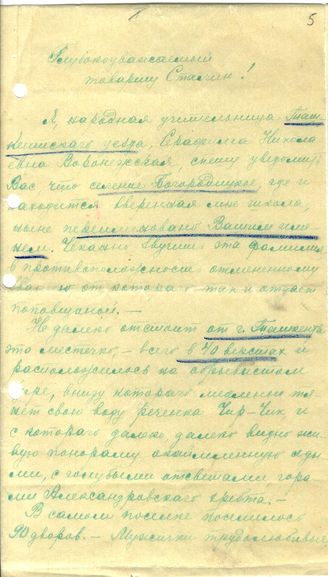 5
Глубокоуважаемый
товарищ Сталин!
Я, народная учительница Таш-
кентского уезда, Серафима Никола
евна Воронежская, спешу уведомить
Вас что селение Богородицкое, где и
находится вверенная мне школа,
ныне переименовано Вашим име
нем. Чеканно звучит эта фамилия
в противоположность отмененному
от которого так и отдает
поповщиной.—
Недалеко отстоит от г. Ташкента
это местечко,— всего в 40 верстах и
расположилось на обрывистом
внизу которого медленно те
чет свою воду реченка Чир-Чик и
с которого далеко далеко видно жи
вую панораму окаймленную
с голубыми отсветами гора
ми Александровского хребта.—
В самом поселке поселилось
90 дворов.— Мужички трудолюбивые